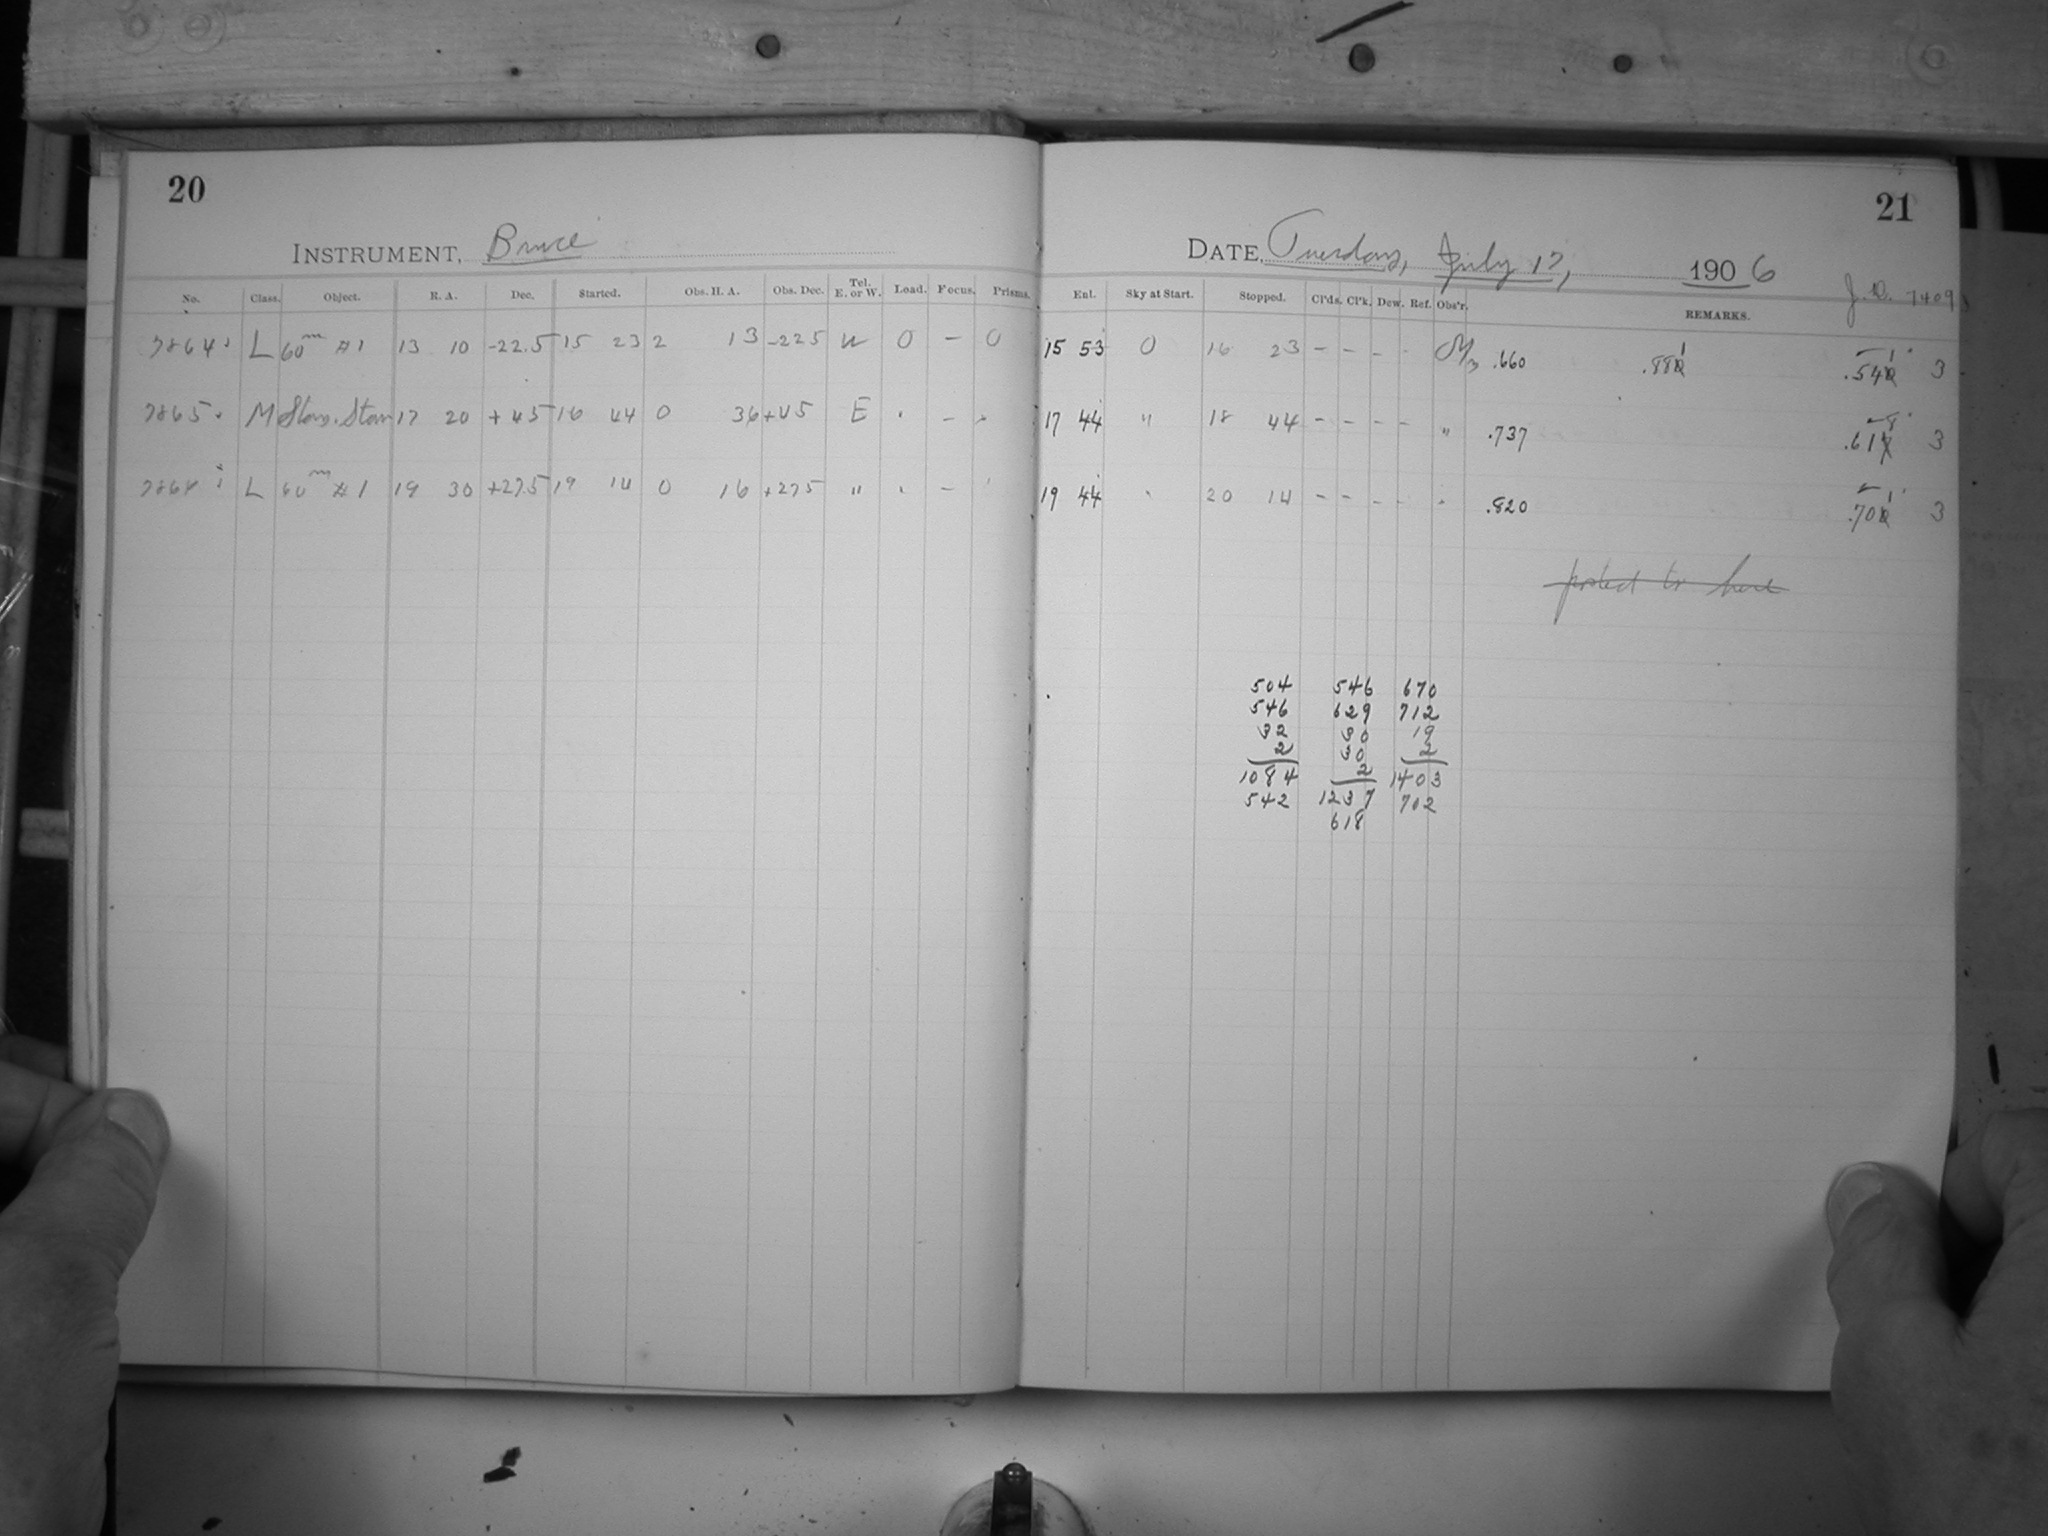 20
INSTRUMENT, Bruce
No. Class. Object. R. A. Dec. Started. Obs. H. A. Obs. Dec. Tel. E. or W. Load. Focus. Prisms.
7864 L 60m #1 13 10 -22.5 15 23 2 13 -22.5 W 0 - 0
7865 M Stan. Stars 17 20 +45 16 44 0 36 +45 E " - "
L 60m #1 19 30 +27.5 19 14 0 16 +27.5 " " -
21
DATE, Tuesday, July 17, 1906
J. D. 7409
Enl. Sky at Start. Stopped. Cl'ds. Cl'k. Dew. Ref. Obs'r. REMARKS.
15 53 0 16 23 - - - - .660 .881 .541 3
17 44 " 18 44 - - - - " .737 .618 3
19 44 " 20 14 - - - - " .820 .701 3
posted to here
504 546 670
546 629 712
32 30 19
2 30 2
1084 2 1403
542 1237 702
618